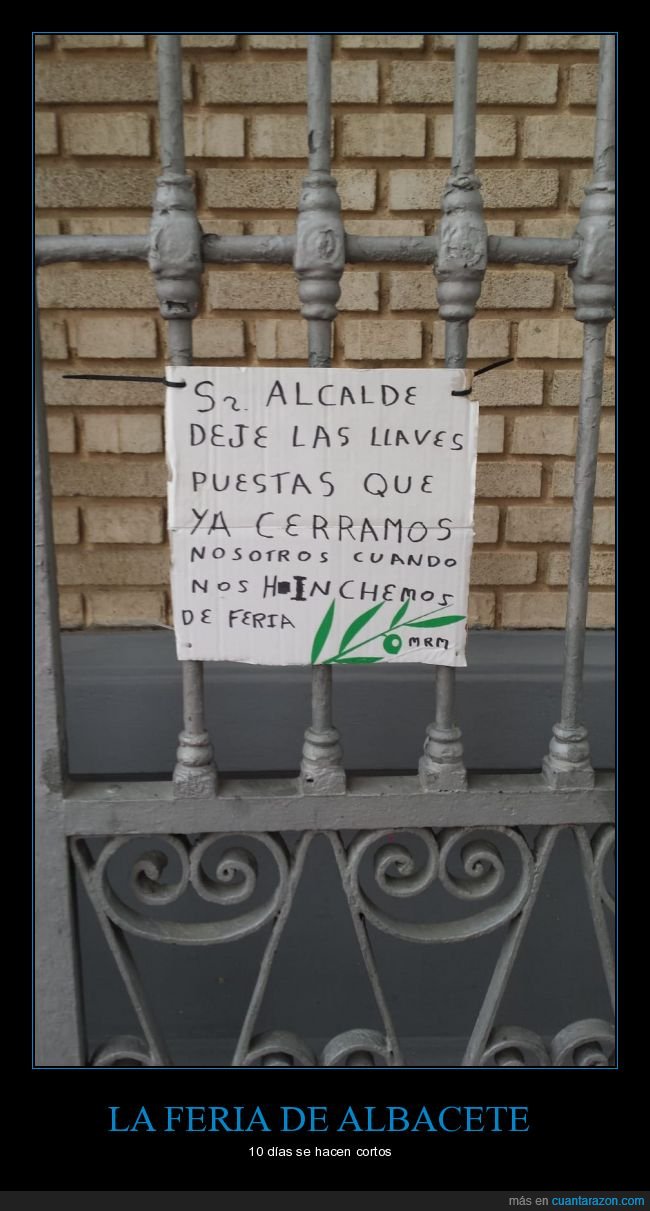 Sr. ALCALDE
DEJE LAS LLAVES
PUESTAS QUE
YA CERRAMOS
NOSOTROS CUANDO
NOS HINCHEMOS
DE FERIA
MRM
LA FERIA DE ALBACETE
10 días se hacen cortos
más en cuantarazon.com